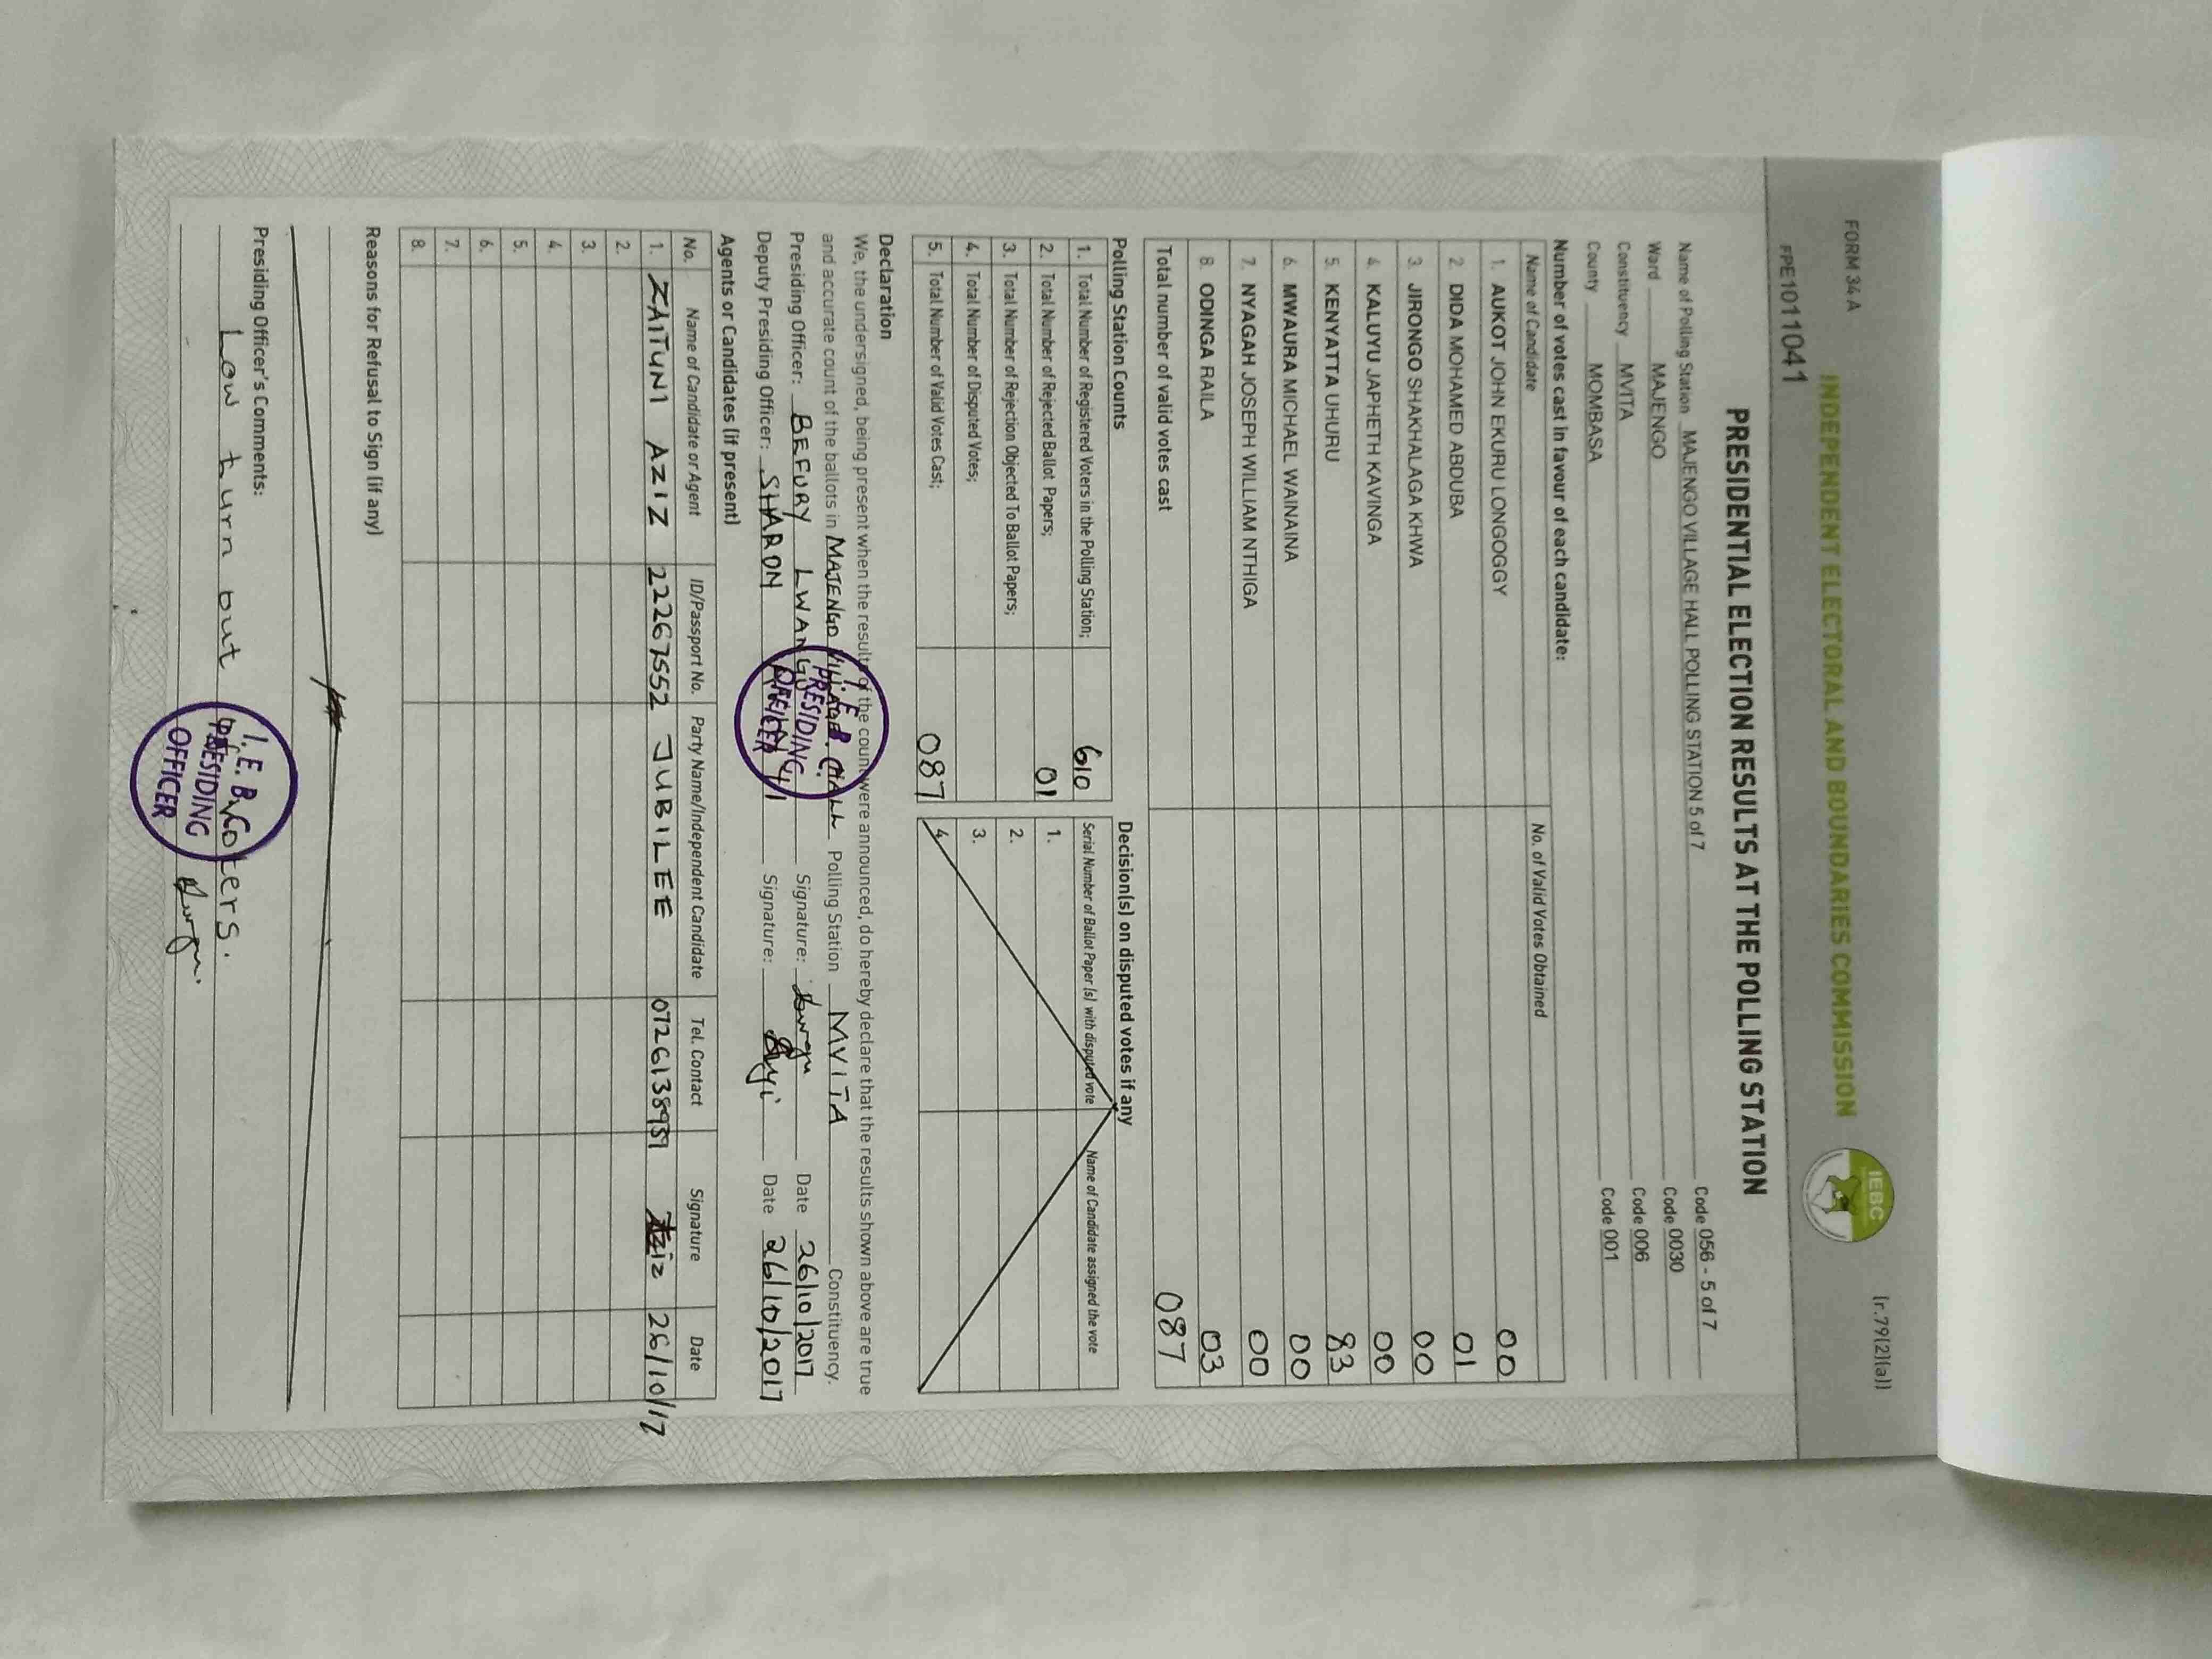 FORM 34 A
(r.79(2)(a))
INDEPENDENT ELECTORAL AND BOUNDARIES COMMISSION
IEBC
FPE1011041
PRESIDENTIAL ELECTION RESULTS AT THE POLLING STATION
Name of Polling Station MAJENGO VILLAGE HALL POLLING STATION 5 of 7 Code 056 - 5 of 7
Ward MAJENGO Code 0030
Constituency MVITA Code 006
County MOMBASA Code 001
Number of votes cast in favour of each candidate:
Name of Candidate No. of Valid Votes Obtained
1. AUKOT JOHN EKURU LONGOGGY 00
2. DIDA MOHAMED ABDUBA 01
3. JIRONGO SHAKHALAGA KHWA 00
4. KALUYU JAPHETH KAVINGA 00
5. KENYATTA UHURU 83
6. MWAURA MICHAEL WAINAINA 00
7. NYAGAH JOSEPH WILLIAM NTHIGA 00
8. ODINGA RAILA 03
Total number of valid votes cast 087
Polling Station Counts
1. Total Number of Registered Voters in the Polling Station; 610
2. Total Number of Rejected Ballot Papers; 01
3. Total Number of Rejection Objected To Ballot Papers;
4. Total Number of Disputed Votes;
5. Total Number of Valid Votes Cast; 087
Decision(s) on disputed votes if any
Serial Number of Ballot Paper (s) with disputed vote Name of Candidate assigned the vote
1.
2.
3.
4.
Declaration
We, the undersigned, being present when the results of the count were announced, do hereby declare that the results shown above are true
and accurate count of the ballots in MAJENGO VILLAGE HALL Polling Station MVITA Constituency.
Presiding Officer: BEFURY LWANGU Signature: Date 26/10/2017
Deputy Presiding Officer: SHARON Signature: Date 26/10/2017
I. E. B. C.
PRESIDING
OFFICER
Agents or Candidates (if present)
No. Name of Candidate or Agent ID/Passport No. Party Name/Independent Candidate Tel. Contact Signature Date
1. ZAITUNI AZIZ 22267552 JUBILEE 0726138939 Aziz 26/10/17
2.
3.
4.
5.
6.
7.
8.
Reasons for Refusal to Sign (if any)
Presiding Officer's Comments:
Low turn out of voters.
I. E. B. C.
PRESIDING
OFFICER